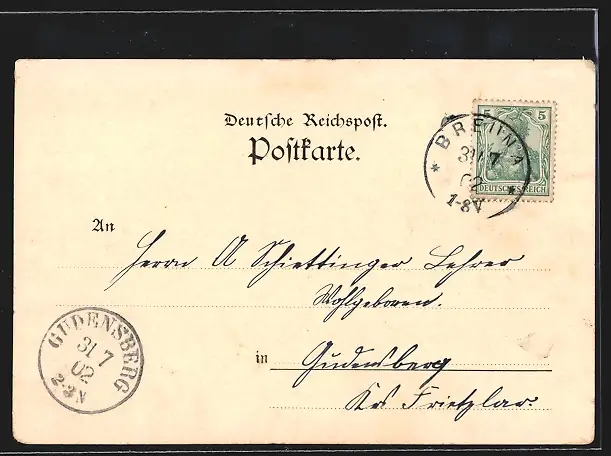 Deutsche Reichspost.
Postkarte.
5 5
BREUNA
31 7
02
1-8V
DEUTSCHES REICH
An
Herrn A Schiettinger Lehrer
Wohlgeboren.
GUDENSBERG
31 7
02
2-3N
in Gudensberg
Krs Frietzlar.